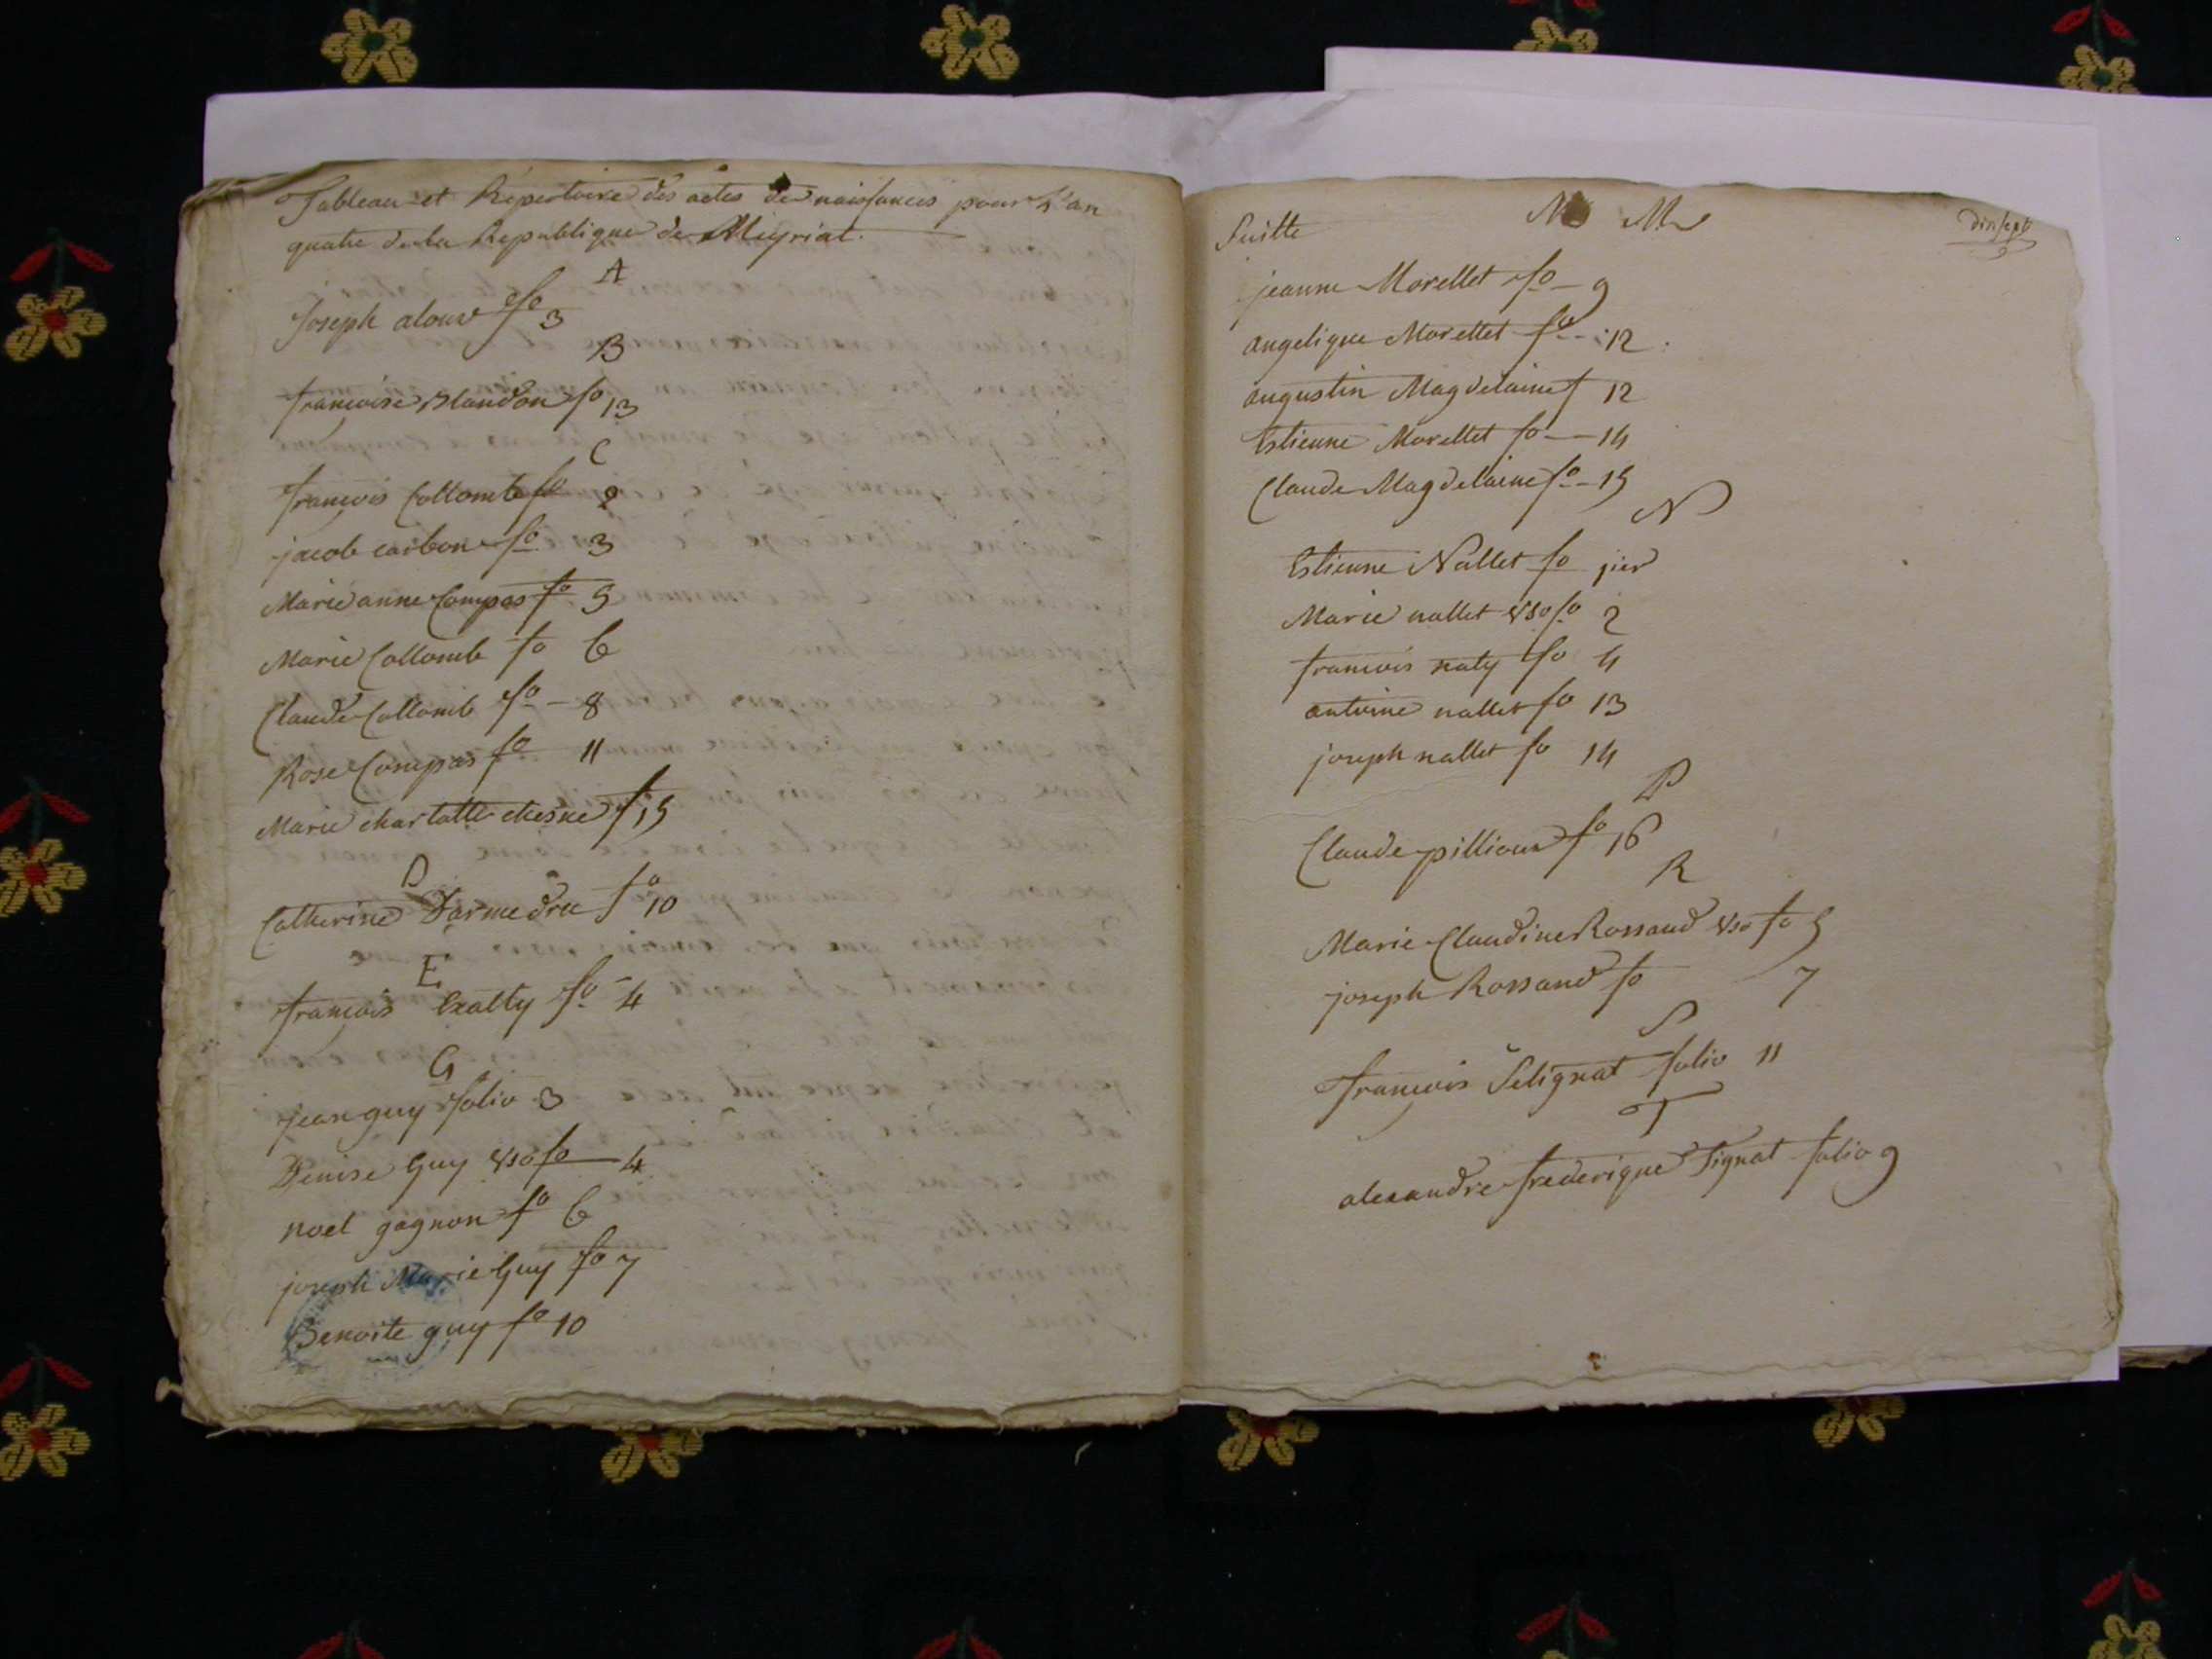 Tableau et Répertoire des actes de naissances pour l'an
quatre de la Republique de Meyriat.
A
Joseph alous fo 3
B
francoise Blandon fo 13
C
francois Collomb fo 2
jacob carbon fo 3
Marie anne Compas fo 5
Marie Collomb fo 6
Claude Collomb fo - 8
Rose Compas fo 11
Marie charlotte chesne f 15
D
Catherine Darmedru fo 10
E
francois Exatty fo 4
G
jean guy folio 3
Denise Guy vso fo 4
noel gagnon fo 6
joseph Marie Guy fo 7
Benoite guy fo 10
Suitte M dixsept
jeanne Morellet fo - 9
angelique Morellet fo - 12
augustin Magdelaine f 12
Estienne Morellet fo - 14
Claude Magdelaine fo - 15
N
Estienne Nallet fo jier
Marie nallet vso fo 2
francois naty fo 4
antoine nallet fo 13
joseph nallet fo 14
P
Claude pillioux fo 16
R
Marie Claudine Rossand vso fo 5
joseph Rossand fo 7
S
francois Selignat folio 11
T
alexandre frederique Tignat folio 9